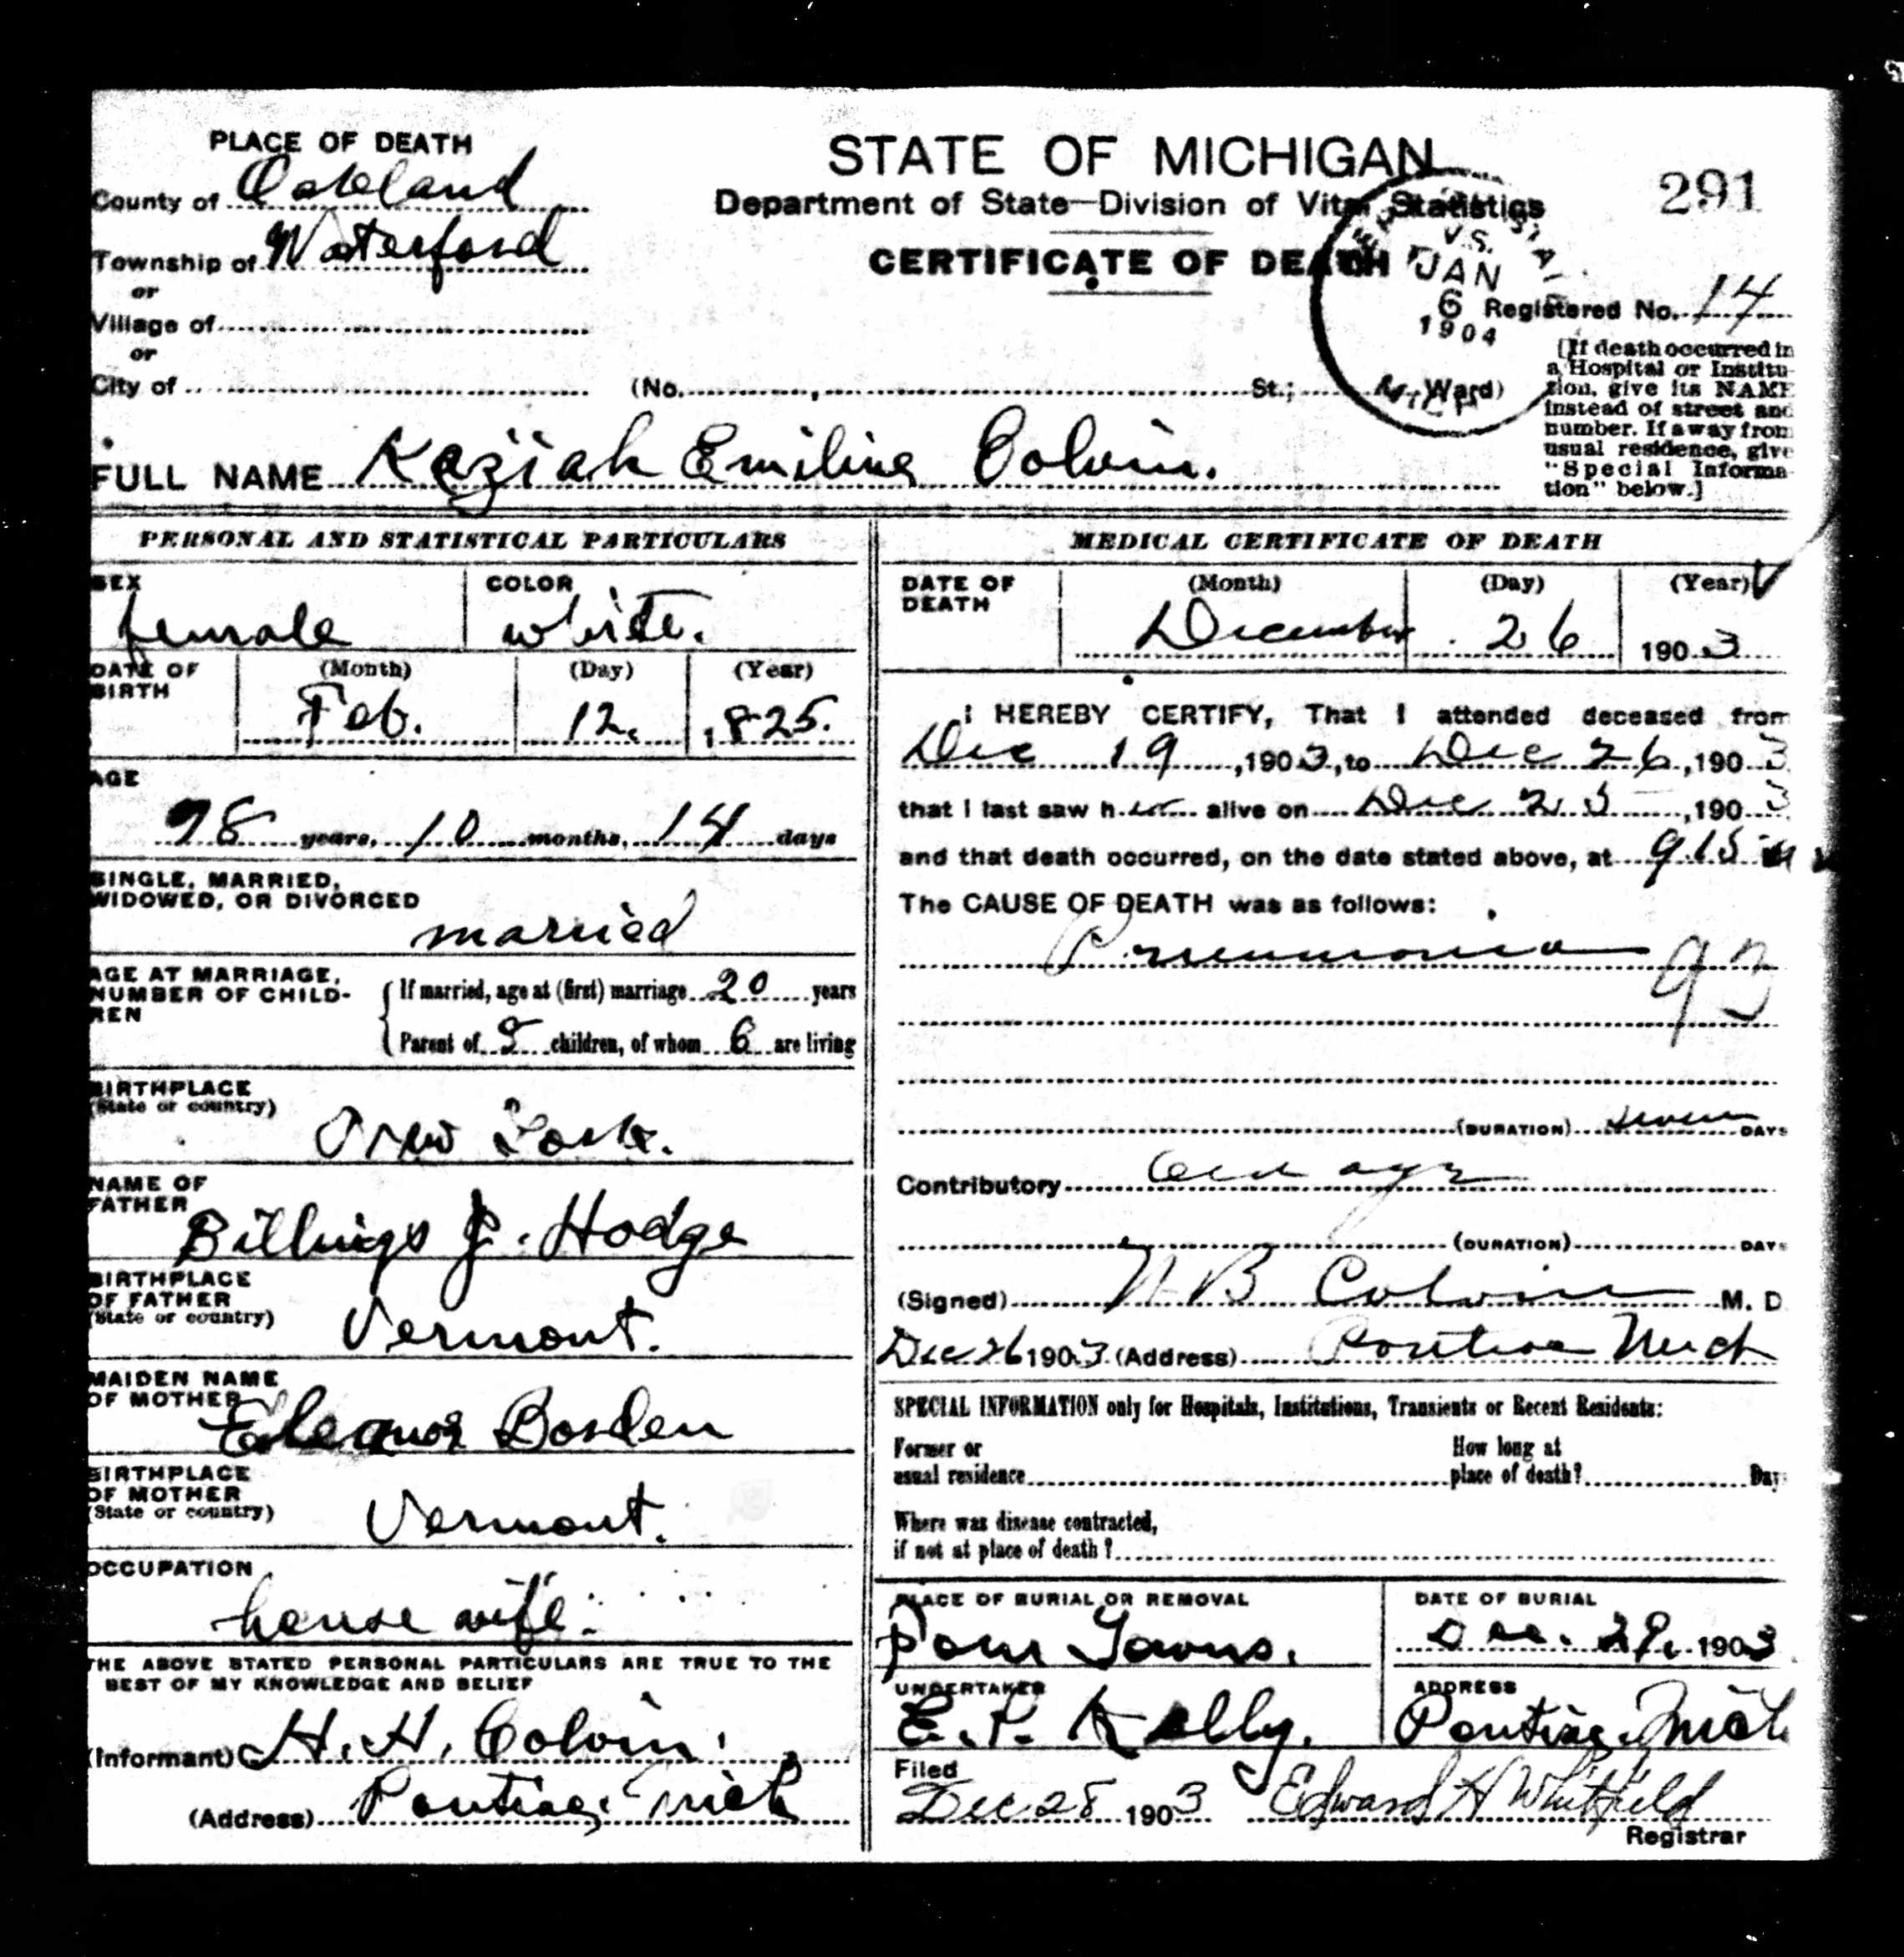 PLACE OF DEATH
County of Oakland
Township of Waterford
or
Village of
or
City of
STATE OF MICHIGAN
Department of State—Division of Vital Statistics
CERTIFICATE OF DEATH
291
V.S.
JAN
6
1904
MICH
Registered No. 14
(No. , St.; Ward)
[If death occurred in
a Hospital or Institu-
tion, give its NAME
instead of street and
number. If away from
usual residence, give
"Special Informa-
tion" below.]
FULL NAME Keziah Emiline Colvin.
PERSONAL AND STATISTICAL PARTICULARS
SEX COLOR
female white.
DATE OF BIRTH (Month) (Day) (Year)
Feb. 12. 1825.
AGE
78 years, 10 months, 14 days
SINGLE, MARRIED,
WIDOWED, OR DIVORCED
married
AGE AT MARRIAGE,
NUMBER OF CHILD-
REN
If married, age at (first) marriage 20 years
Parent of children, of whom 6 are living
BIRTHPLACE
(State or country)
New York.
NAME OF
FATHER
Billings J. Hodge
BIRTHPLACE
OF FATHER
(State or country)
Vermont.
MAIDEN NAME
OF MOTHER
Eleanor Borden
BIRTHPLACE
OF MOTHER
(State or country)
Vermont.
OCCUPATION
house wife.
THE ABOVE STATED PERSONAL PARTICULARS ARE TRUE TO THE
BEST OF MY KNOWLEDGE AND BELIEF
(Informant) H. H. Colvin.
(Address) Pontiac Mich
MEDICAL CERTIFICATE OF DEATH
DATE OF DEATH (Month) (Day) (Year)
December 26 1903
I HEREBY CERTIFY, That I attended deceased from
Dec 19, 1903, to Dec 26, 1903
that I last saw her alive on Dec 25, 1903
and that death occurred, on the date stated above, at 9.15
The CAUSE OF DEATH was as follows:
Pneumonia 93
(DURATION) seven DAYS
Contributory Old age
(DURATION) DAYS
(Signed) N B Colvin M. D
Dec 26 1903 (Address) Pontiac Mich
SPECIAL INFORMATION only for Hospitals, Institutions, Transients or Recent Residents:
Former or
usual residence
How long at
place of death? Days
Where was disease contracted,
if not at place of death?
PLACE OF BURIAL OR REMOVAL
Four Towns.
DATE OF BURIAL
Dec. 29, 1903
UNDERTAKER
E. P. Kelly.
ADDRESS
Pontiac, Mich
Filed
Dec 28 1903 Edward H Whitfield
Registrar